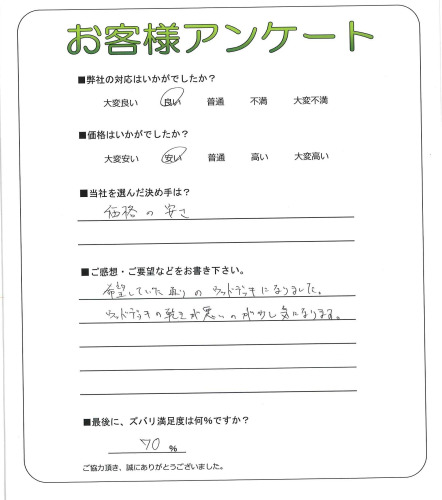 お客様アンケート
■弊社の対応はいかがでしたか？
大変良い 良い 普通 不満 大変不満
■価格はいかがでしたか？
大変安い 安い 普通 高い 大変高い
■当社を選んだ決め手は？
価格の安さ
■ご感想・ご要望などをお書き下さい。
希望していた通りのウッドデッキになりました。
ウッドデッキの乾きが悪いのが少し気になります。
■最後に、ズバリ満足度は何％ですか？
70 ％
ご協力頂き、誠にありがとうございました。